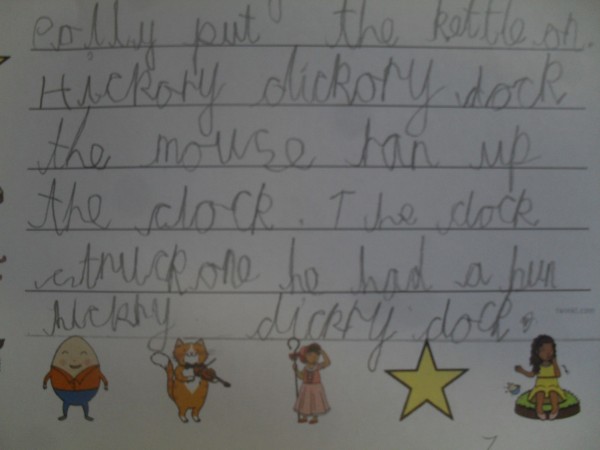 polly put the kettle on.
Hickory dickory dock
the mouse ran up
the clock. The clock
struck one he had a bun
hickry dickry dock.